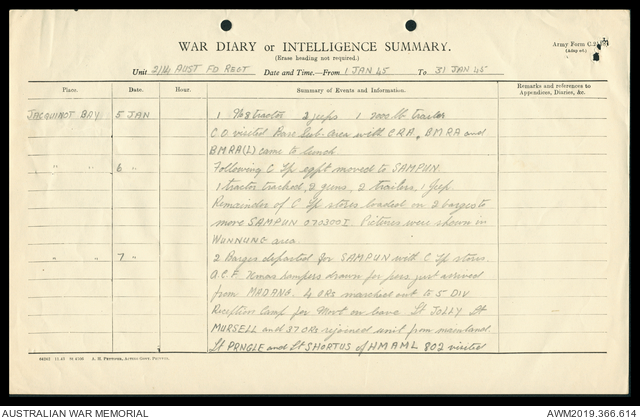 Army Form C.2118.
WAR DIARY OR INTELLIGENCE SUMMARY.
(Erase heading not required.)
Unit 2/14 AUST FD REGT Date and Time.—From 1 JAN 45 To 31 JAN 45
Place. Date. Hour. Summary of Events and Information. Remarks and references to Appendices, Diaries, &c.
JACQUINOT BAY 5 JAN 1 tractor 2 jeeps 1 2000 lb trailer
C.O visited Base Sub-Area with CRA, BMRA and
BMRA(L) came to lunch
" " 6 Following C Tp eqpt moved to SAMPUN.
1 tractor tracked, 2 guns, 2 trailers, 1 Jeep.
Remainder of C Tp stores loaded on 2 barges to
move SAMPUN 070300I. Pictures were shown in
WUNUNG area.
" " 7 2 Barges departed for SAMPUN with C Tp stores.
A.C.F. Xmas hampers drawn for pers just arrived
from MADANG. 4 ORs marched out to 5 DIV
Reception Camp for Movt on leave Lt JOLLY Lt
MURSELL and 37 ORs rejoined unit from mainland
Lt PRNGLE and Lt SHORTUS of HMAML 802 visited
AUSTRALIAN WAR MEMORIAL AWM2019.366.614